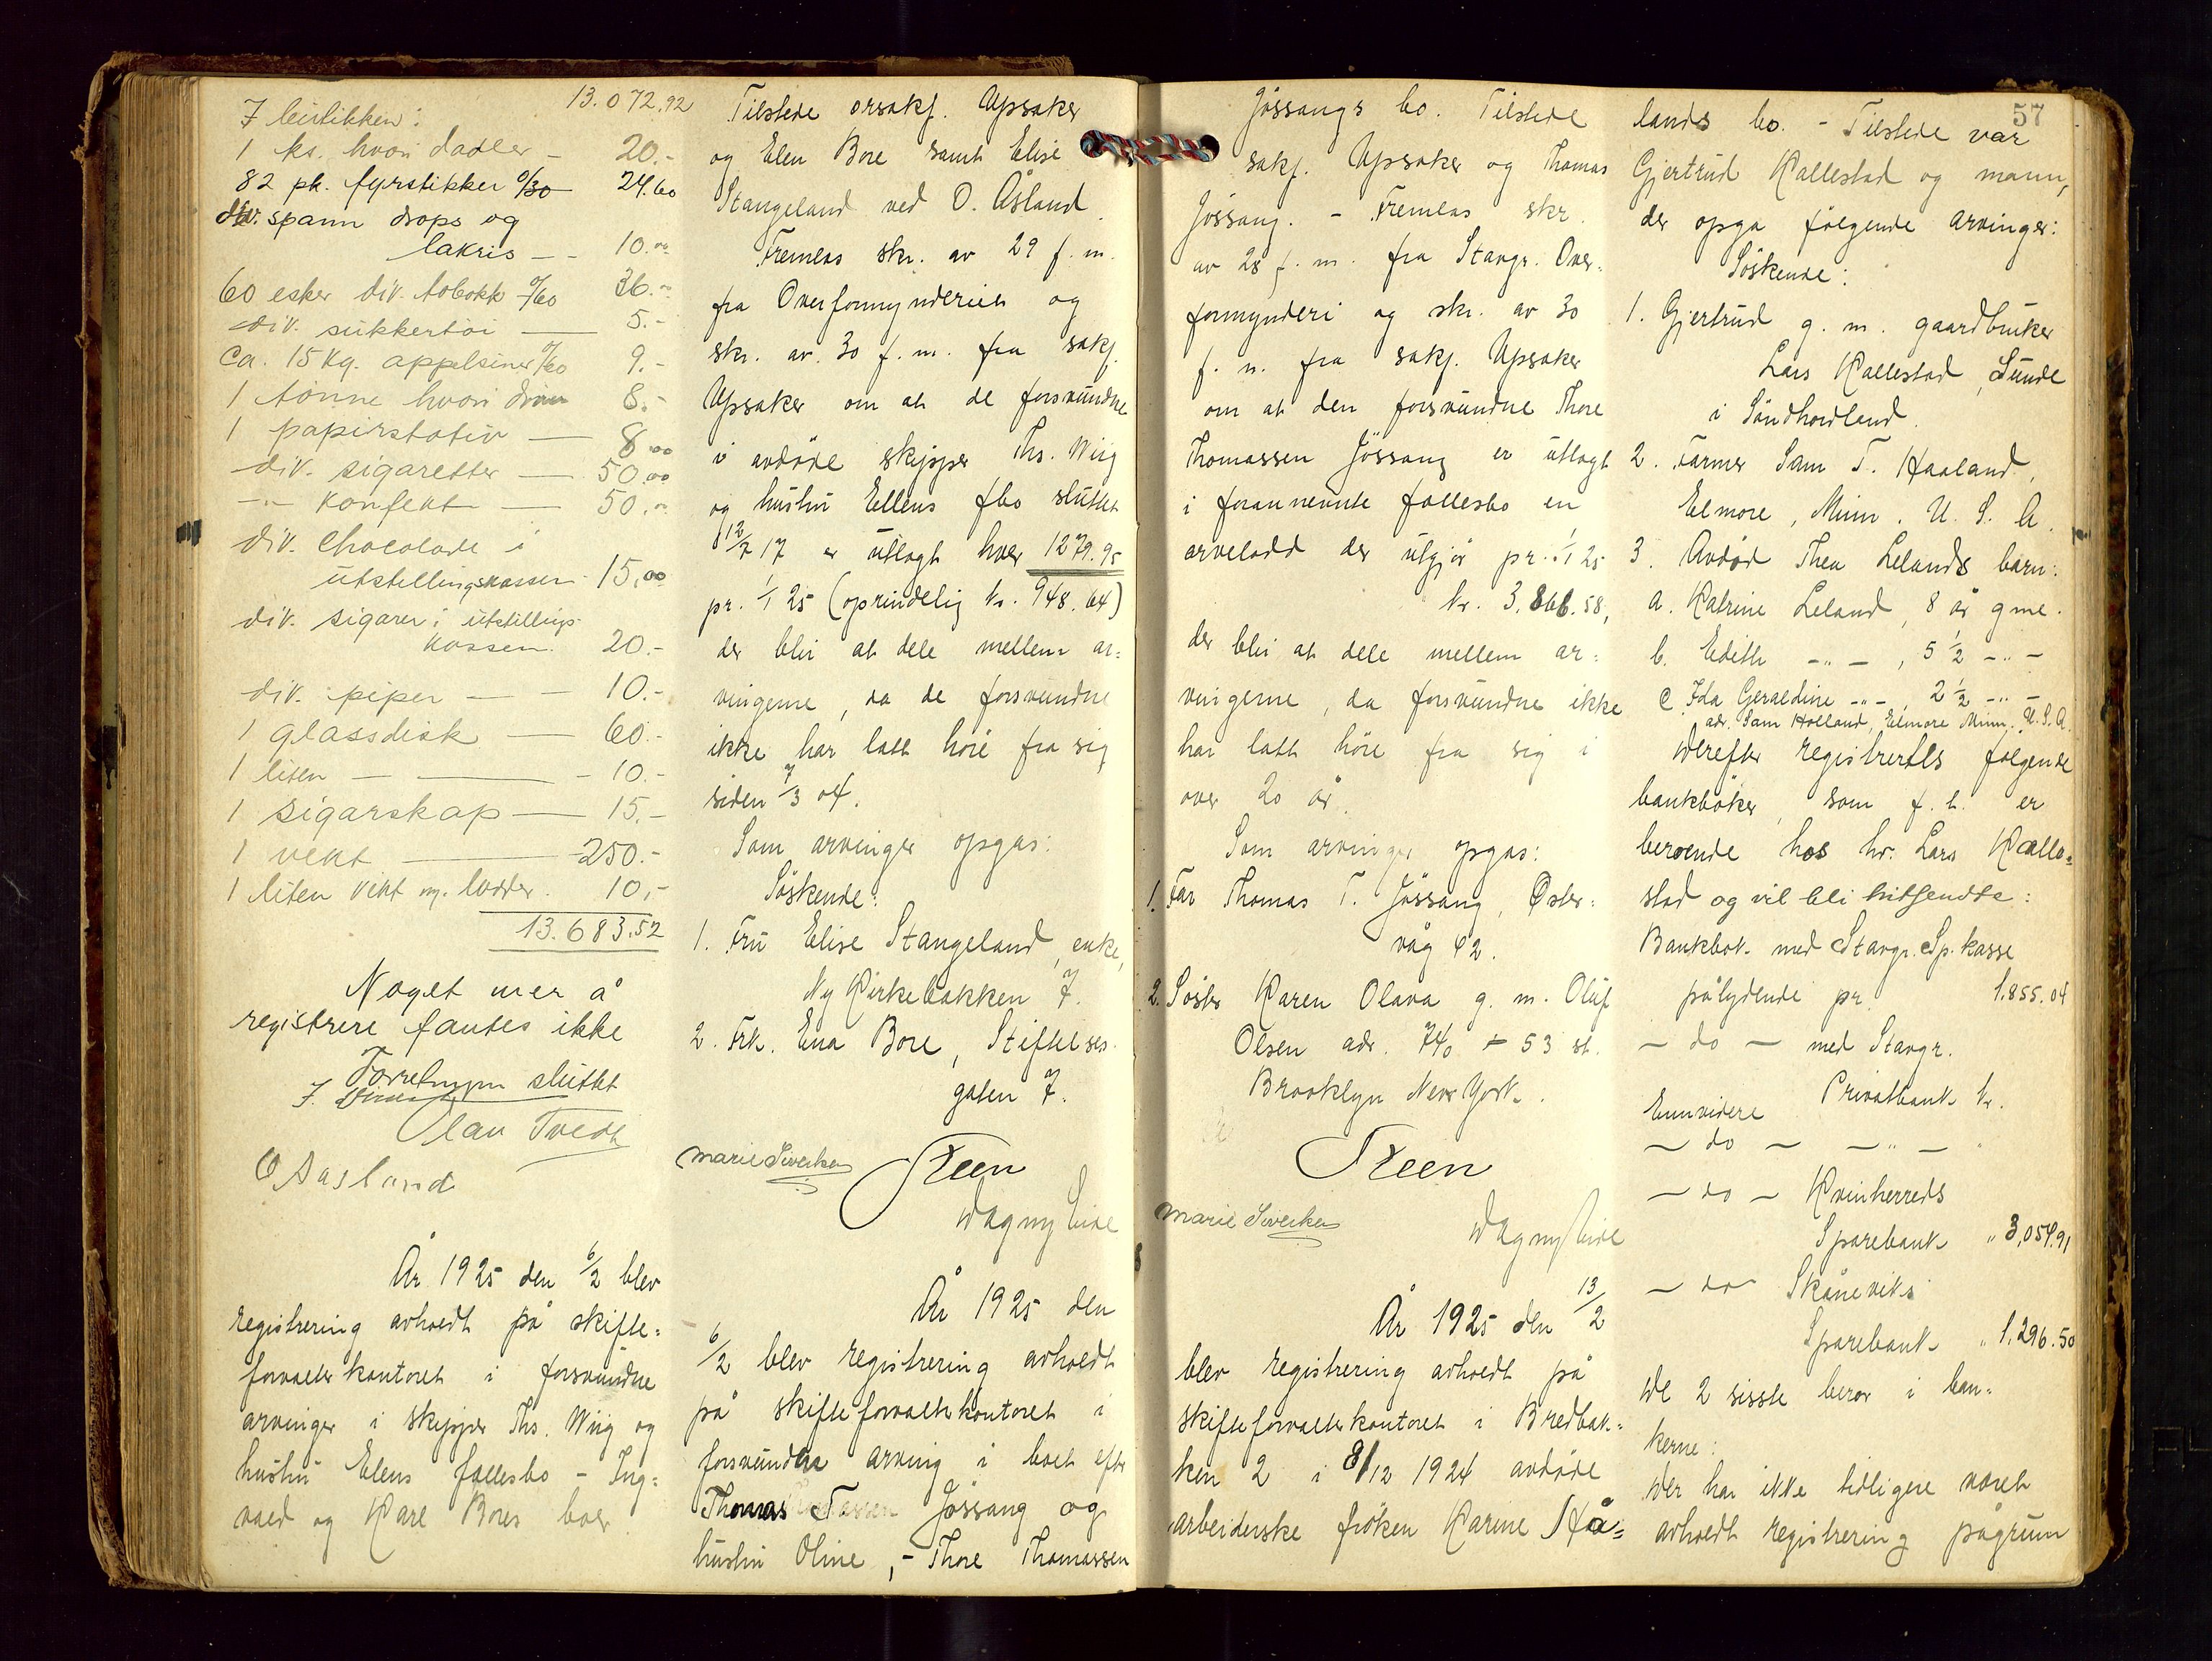 13.072.92
I butikken:
1 ks. hvori dadler - 20.-
82 pk. fyrstikker o/30 24.60
div. spann drops og
lakris - - 10.00
60 esker div. tobakk o/60 36.-
div. sukkertøi - 5.-
Ca. 15 kg. appelsiner o/60 9.-
1 tønne hvori 8.-
1 papirstativ - 8.00
div. sigaretter - 50.00
-"- konfekt - 50.-
div. chocolade i
utstellingskassen 15.00
div. sigarer i utstillings-
kassen. 20.-
div. piper - - 10.-
1 glassdisk - 60.-
1 liten - - 10.-
1 sigarskap - 15.-
1 vekt - 250.-
1 liten vekt m. lodder. 10,-
13.683.52
Noget mer å
registrere fantes ikke
Forretningen sluttet
Olav Tvedt
O Aasland
År 1925 den 6/2 blev
registrering avholdt på skifte=
forvalterkontoret i forsvundne
arvinger i skipper Ths. Wiig og
hustru Elens fællesbo - Ing=
vald og Kare Bores boer.
Tilstede orsakf. Upsaker
og Elen Bore samt Elise
Stangeland ved O. Åsland.
Fremlas skr. av 29 f. m.
fra Overformynderiet og
skr. av 30 f. m. fra sakf.
Upsaker om at de forsvundne
i avdøde skipper Ths. Wiig
og hustru Ellens fbo sluttet
12/7 17 er utlagt hver 1279.95
pr. 1/1 25 (oprindelig kr. 948.64)
der blir at dele mellem ar=
vingerne, da de forsvundne
ikke har latt høre fra sig
siden 7/3 04.
Som arvinger opgas:
Søskende:
1. Fru Elise Stangeland, enke,
Ny Kirkebakken 7.
2. Frk. Ena Bore, Stiftelses-
gaten 7.
Marie Siverksen Steen
Dagny Eide
År 1925 den
6/2 blev registrering avholdt
på skifteforvalterkontoret i
forsvundne arving i boet efter
Thomas Jøssang og
hustru Oline, - Thore Thomassen
Jøssangs bo. Tilstede
sakf. Upsaker og Thomas
Jøssang. - Fremlas skr.
av 28 f. m. fra Stavgr. Over-
formynderi og skr. av 30
f. m. fra sakf. Upsaker
om at den forsvundne Thore
Thomassen Jøssang er utlagt
i forannevnte fællesbo en
arvelodd der utgjør pr. 1/1 25
kr. 3.866.58,
der blir at dele mellem ar=
vingerne, da forsvundne ikke
har latt høre fra sig i
over 20 år.
Som arvinger opgas:
1. Far Thomas T. Jøssang, Øster=
våg 42.
2. Søster Karen Olava g. m. Oluf
Olsen adr. 740 - 53 st.
Brooklyn New York.
Steen
Marie Siverksen Dagny Eide
År 1925 den 13/2
blev registrering avholdt på
skifteforvalterkontoret i Bredbak-
ken 2 i 8/12 1924 avdøde
arbeiderske frøken Karine Hå=
57
lands bo. - Tilstede var
Gjertrud Kallestad og mann,
der opga følgende arvinger:
Søskende:
1. Gjertrud g. m. gaardbruker
Lars Kallestad, Sunde
i Søndhordland.
2. Farmer Sam T. Haaland,
Elmore, Minn. U. S. A.
3. Avdød Thea Lelands barn:
a. Katrine Leland, 8 år gme.
b. Edith -"-, 5 1/2 -"-
c. Ida Geraldine -"-, 2 1/2 -"-
adr. Sam Holland, Elmore Minn. U.S.A.
Derefter registrertes følgende
bankbøker, som f. t. er
beroende hos hr. Lars Kalle=
stad og vil bli hitsendte:
Bankbok med Stavgr. Sp.kasse
pålydende pr. 1.855.04
- do - med Stavgr.
Privatbank kr.
Ennvidere
- do - -"-
- do - Kvinherreds
Sparebank " 3,054.91
- do - Skåneviks
Sparebank " 1.296.50
De 2 sisste beror i ban-
kerne:
Der har ikke tidligere været
avholdt registrering pågrunn